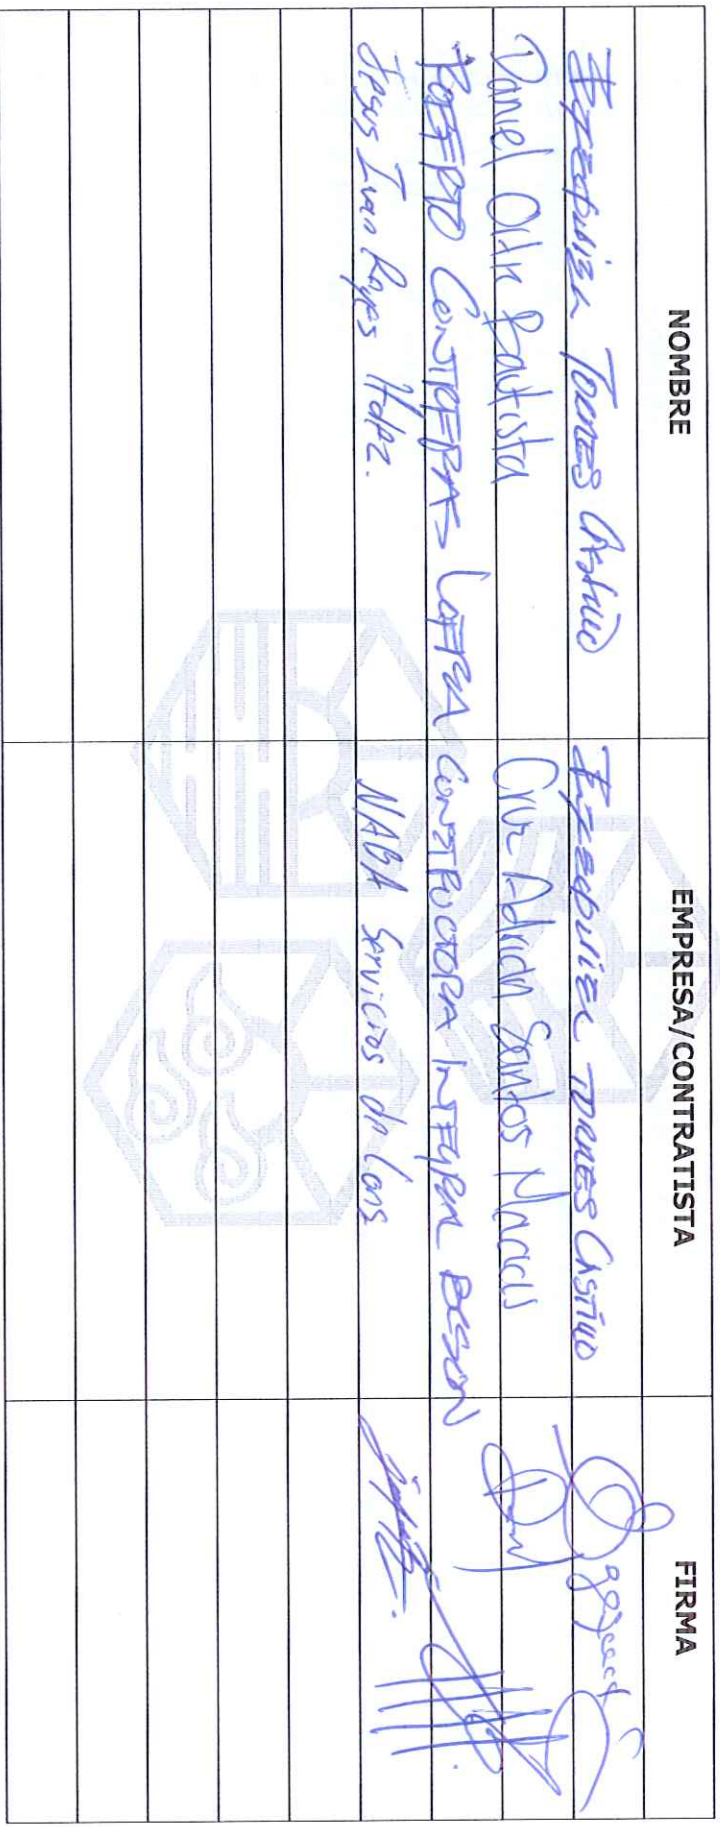 NOMBRE EMPRESA/CONTRATISTA FIRMA
Torres Castillo Torres Castillo
Daniel Olin Bautista Cruz Adrian Santos Macias
ROBERTO CONTRERAS CONSTRUCTORA INTEGRAL BESCON
Jesus Ivan Reyes Hdez. NABA Servicios de Cons